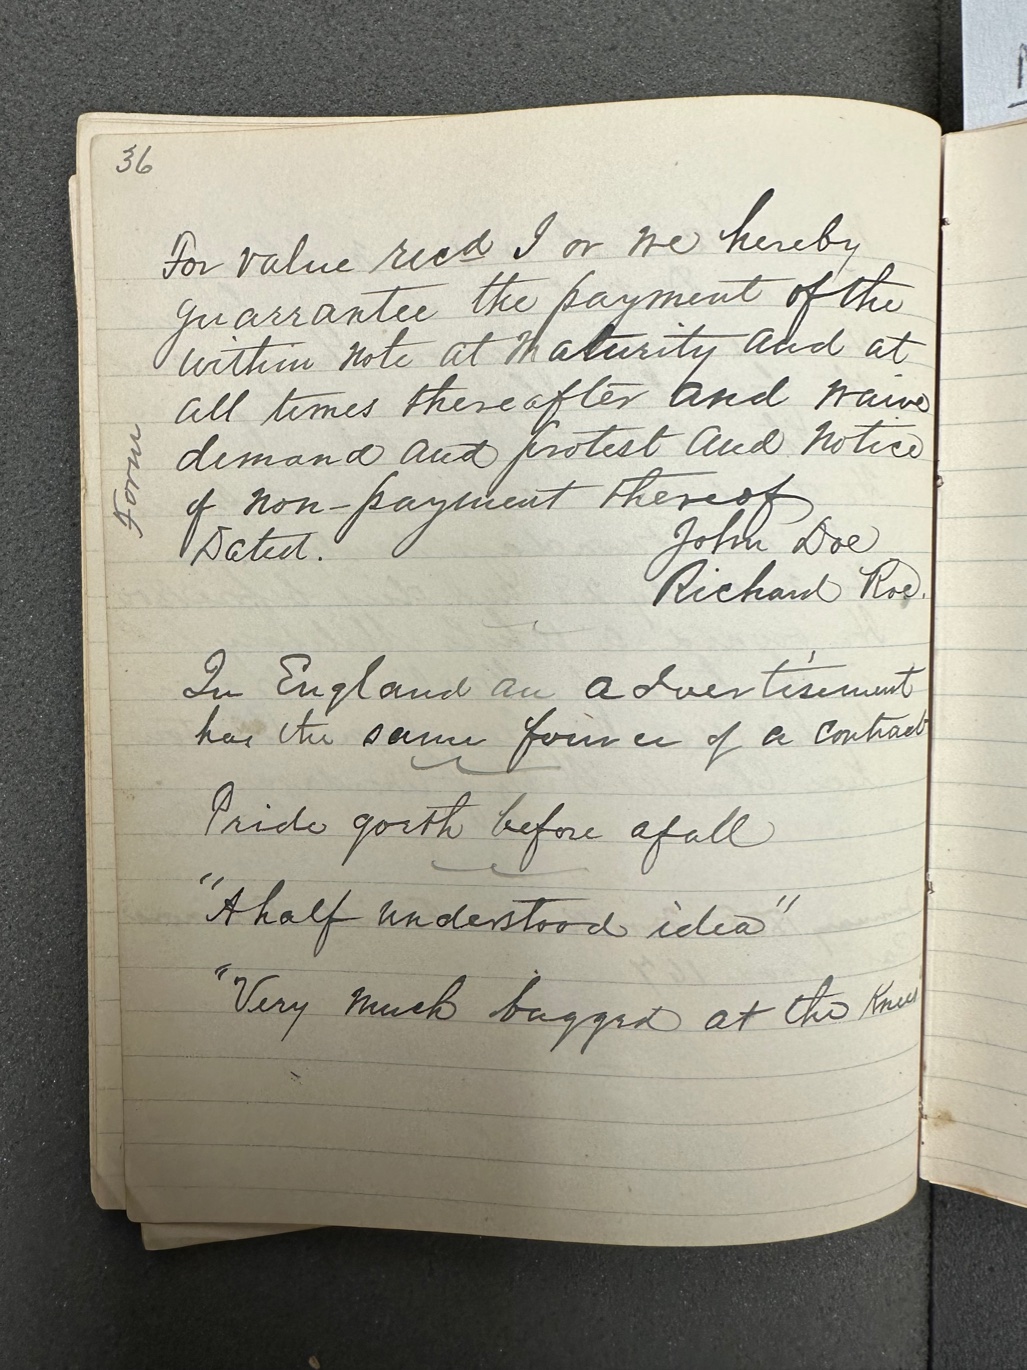 36
For value recd I or we hereby
guarrantee the payment of the
within note at Maturity and at
all times thereafter and waive
demand and protest and Notice
of non-payment thereof
Form
Dated.
John Doe
Richard Roe.
In England an advertisement
has the same of a contract
Pride goeth before a fall
"A half understood idea"
"Very much bagged at the Knees